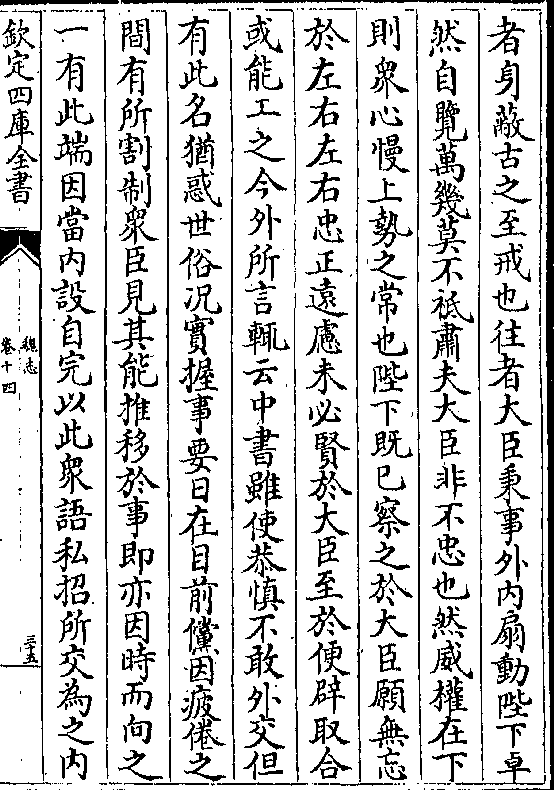 者身蔽古之至戒也往者大臣秉事外内扇動陛下卓
然自覽萬幾莫不祗肅夫大臣非不忠也然威權在下
則衆心慢上勢之常也陛下既已察之於大臣願無忘
於左右左右忠正遠慮未必賢於大臣至於便辟取合
或能工之今外所言輒云中書雖使恭慎不敢外交但
有此名猶惑世俗况實握事要日在目前儻因疲倦之
間有所割制衆臣見其能推移於事即亦因時而向之
一有此端因當内設自完以此衆語私招所交為之内
欽定四庫全書
魏志
卷十四
三十五